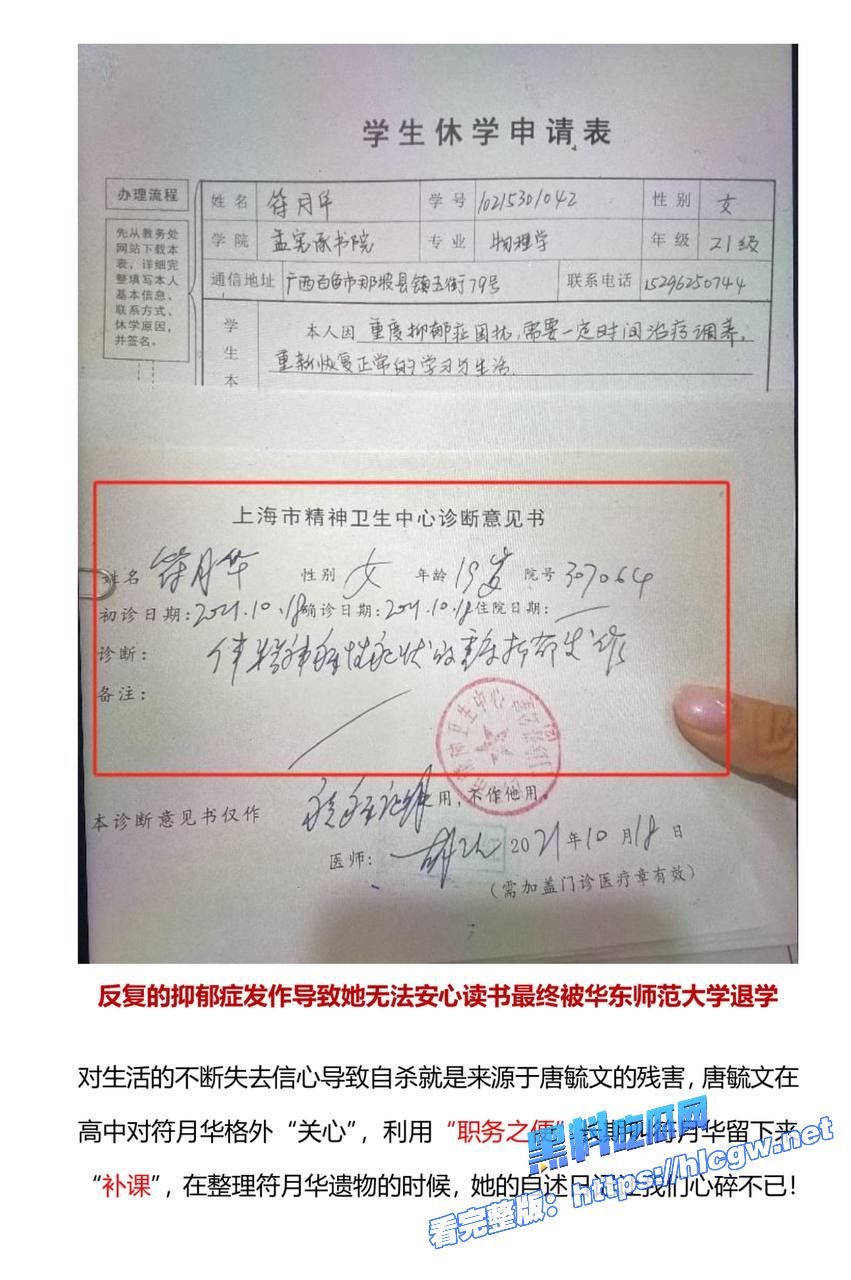 学生休学申请表
办理流程
先从教务处
网站下载本
表，详细完
整填写本人
基本信息、
联系方式、
休学原因，
并签名。
姓名 符月华 学号 10215301042 性别 女
学院 孟宪承书院 专业 物理学 年级 21级
通信地址 广西百色市那坡县镇玉街79号 联系电话 15296250744
学
生
本
本人因 重度抑郁症困扰，需要一定时间治疗调养，
重新恢复正常的学习与生活.
上海市精神卫生中心诊断意见书
姓名 符月华 性别 女 年龄 19岁 院号 307064
初诊日期：2021.10.18 确诊日期：2021.10.18 住院日期：
诊断： 伴精神病性症状的重度抑郁发作
备注：
本诊断意见书仅作 用，不作他用。
医师： 2021年10月18日
（需加盖门诊医疗章有效）
反复的抑郁症发作导致她无法安心读书最终被华东师范大学退学
对生活的不断失去信心导致自杀就是来源于唐毓文的残害，唐毓文在
高中对符月华格外“关心”，利用“职务之便” 符月华留下来
“补课”，在整理符月华遗物的时候，她的自述 我们心碎不已！
黑料吃瓜网
看完整版：https://hlcgw.net